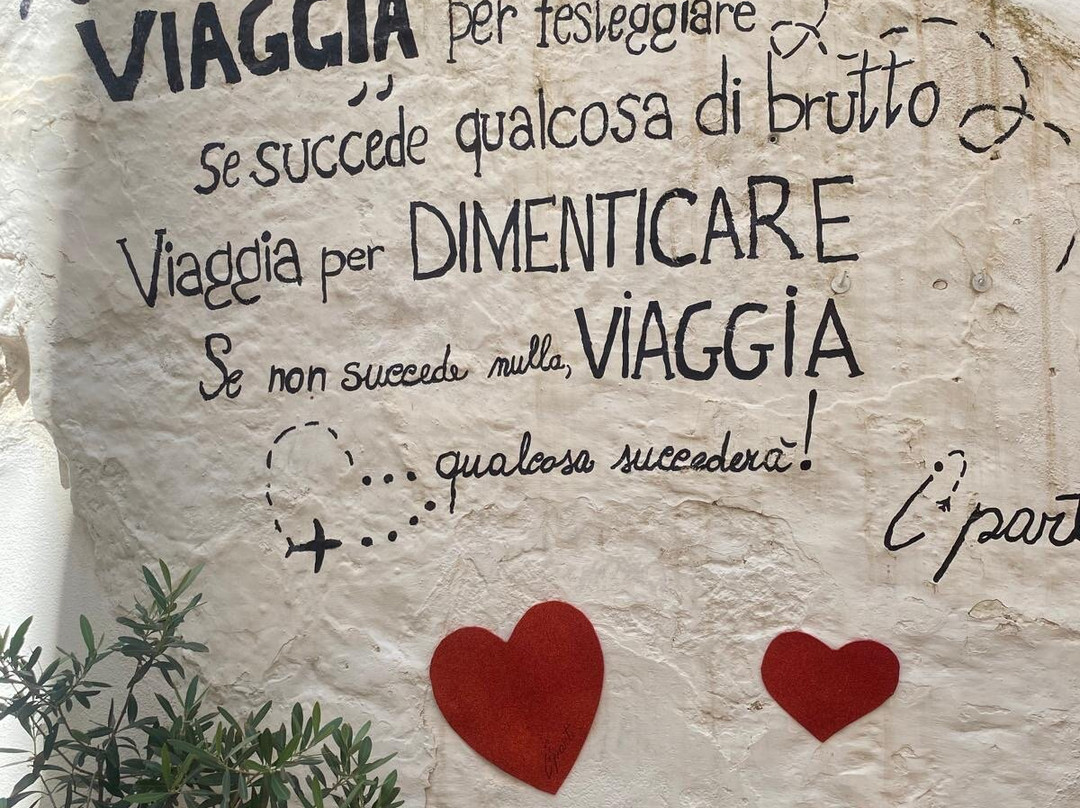 VIAGGIA per festeggiare
se succede qualcosa di brutto
Viaggia per DIMENTICARE
Se non succede nulla, VIAGGIA
... qualcosa succederà!